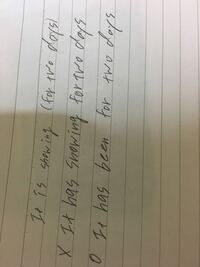 It is snowing (for two days)
X It has snowing for two days
O It has been for two days